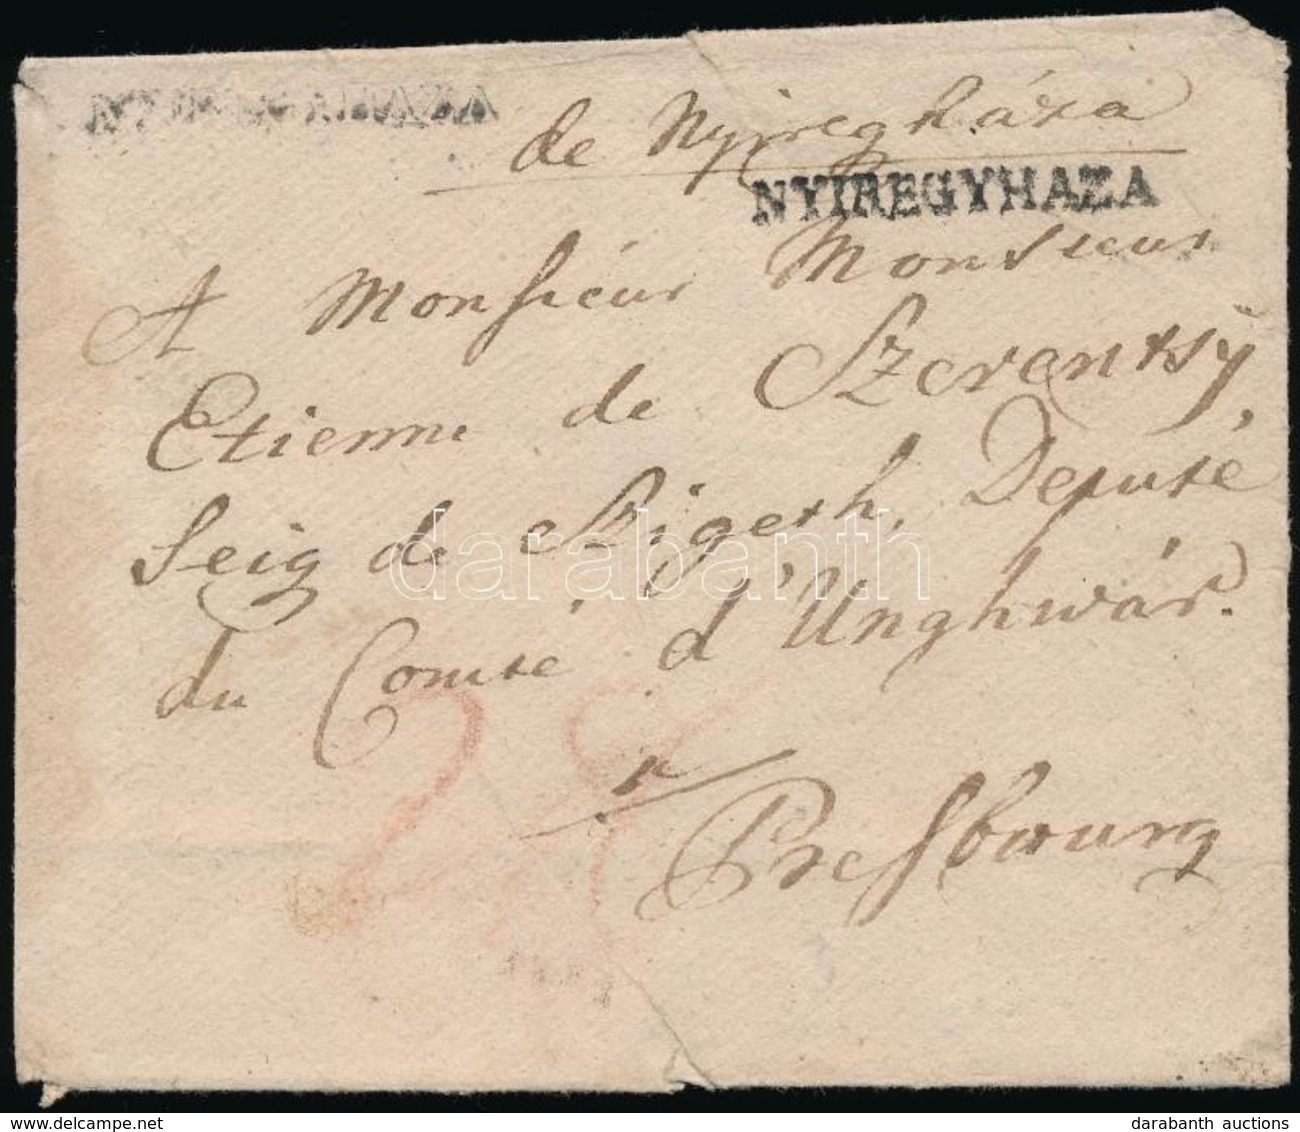 de Nyiregháza
NYIREGYHAZA
A Monsieur Monsieur
Etienne de Szerentsÿ,
Seig de Szigeth, Deputé
du Comté d'Unghwár.
28
a
Presbourg
darabanth
www.delcampe.net
darabanth auctions